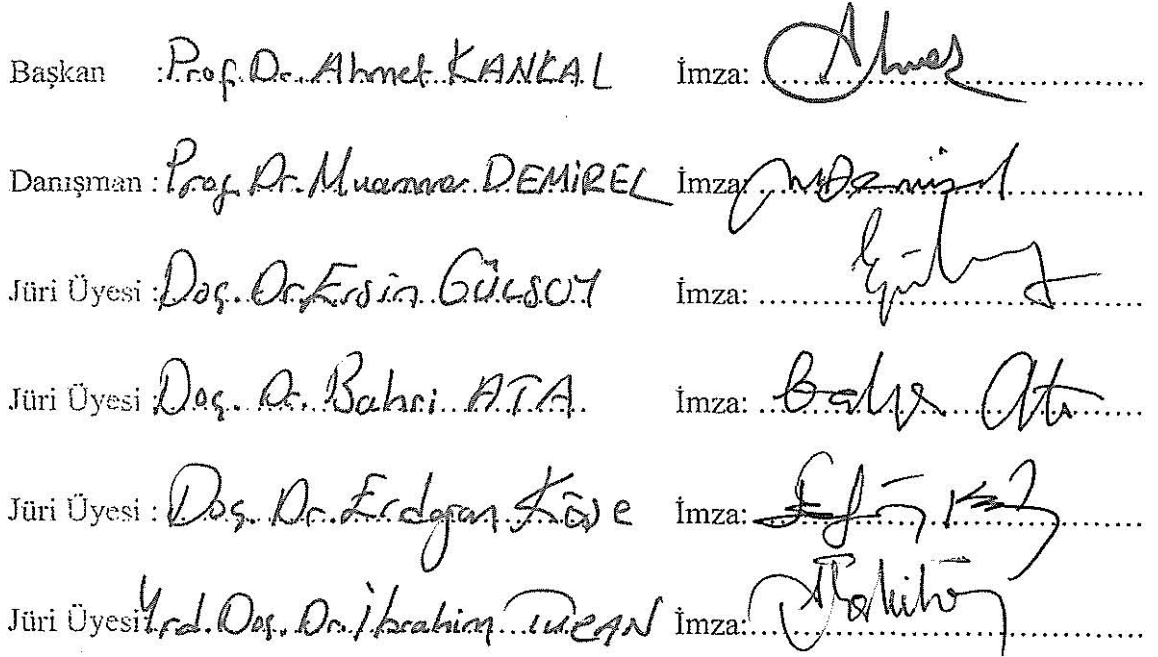 Başkan : Prof. Dr. Ahmet KANKAL İmza:
Danışman : Prof. Dr. Muammer DEMİREL İmza:
Jüri Üyesi : Doç. Dr. Ersin GÜLSOY İmza:
Jüri Üyesi : Doç. Dr. Bahri ATA İmza:
Jüri Üyesi : Doç. Dr. Erdoğan Köse İmza:
Jüri Üyesi Yrd. Doç. Dr. İbrahim TURAN İmza: